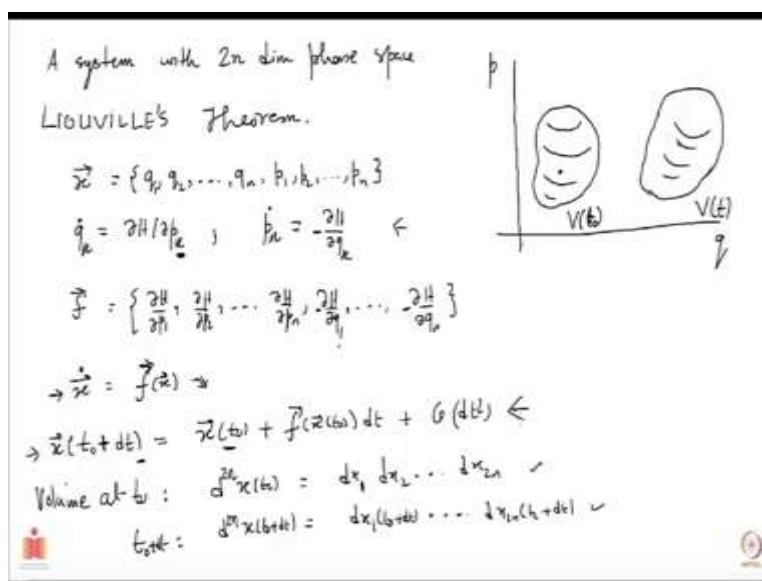 A system with 2n dim phase space
LIOUVILLE'S Theorem.
x⃗ = {q₁, q₂, ..., qₙ, p₁, p₂, ..., pₙ}
q̇ₖ = ∂H/∂pₖ ; ṗₖ = -∂H/∂qₖ ←
f⃗ = {∂H/∂p₁, ∂H/∂p₂, ... ∂H/∂pₙ, -∂H/∂q₁, ..., -∂H/∂qₙ}
→ ẋ⃗ = f⃗(x⃗)
→ x⃗(t₀+dt) = x⃗(t₀) + f⃗(x⃗(t₀)) dt + O(dt²) ←
Volume at t₀ : d²ⁿx(t₀) = dx₁ dx₂ ... dx₂ₙ ✓
t₀+dt : d²ⁿx(t₀+dt) = dx₁(t₀+dt) .... dx₂ₙ(t₀+dt) ✓
p
V(t₀)
V(t)
q